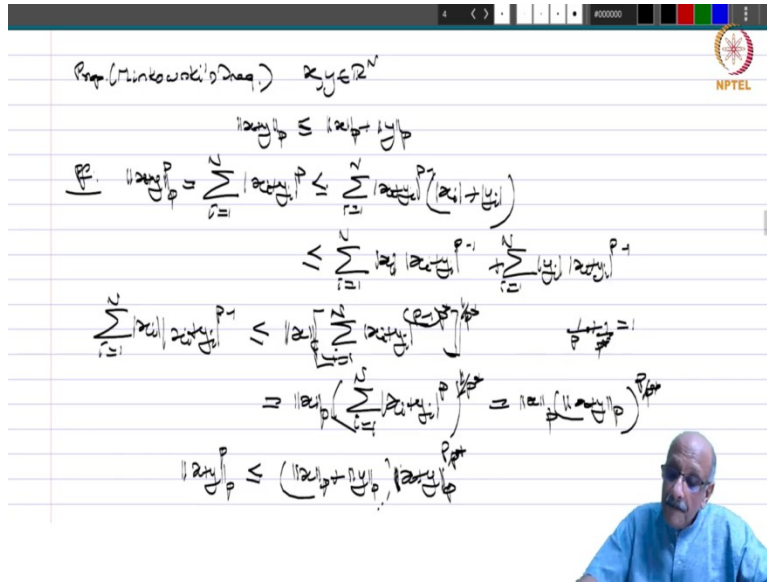 4 < > #000000
NPTEL
Prop. (Minkowski's Ineq.) x, y ∈ ℝ^N
‖x+y‖_p ≤ ‖x‖_p + ‖y‖_p
Pf. ‖x+y‖_p^p = ∑_{i=1}^N |x_i+y_i|^p ≤ ∑_{i=1}^N |x_i+y_i|^{p-1} (|x_i|+|y_i|)
≤ ∑_{i=1}^N |x_i| |x_i+y_i|^{p-1} + ∑_{i=1}^N |y_i| |x_i+y_i|^{p-1}
∑_{i=1}^N |x_i| |x_i+y_i|^{p-1} ≤ ‖x‖_p [∑_{i=1}^N |x_i+y_i|^{(p-1)p*}]^{1/p*} 1/p + 1/p* = 1
= ‖x‖_p (∑_{i=1}^N |x_i+y_i|^p)^{1/p*} = ‖x‖_p (‖x+y‖_p)^{p/p*}
‖x+y‖_p^p ≤ (‖x‖_p + ‖y‖_p) ‖x+y‖_p^{p/p*}